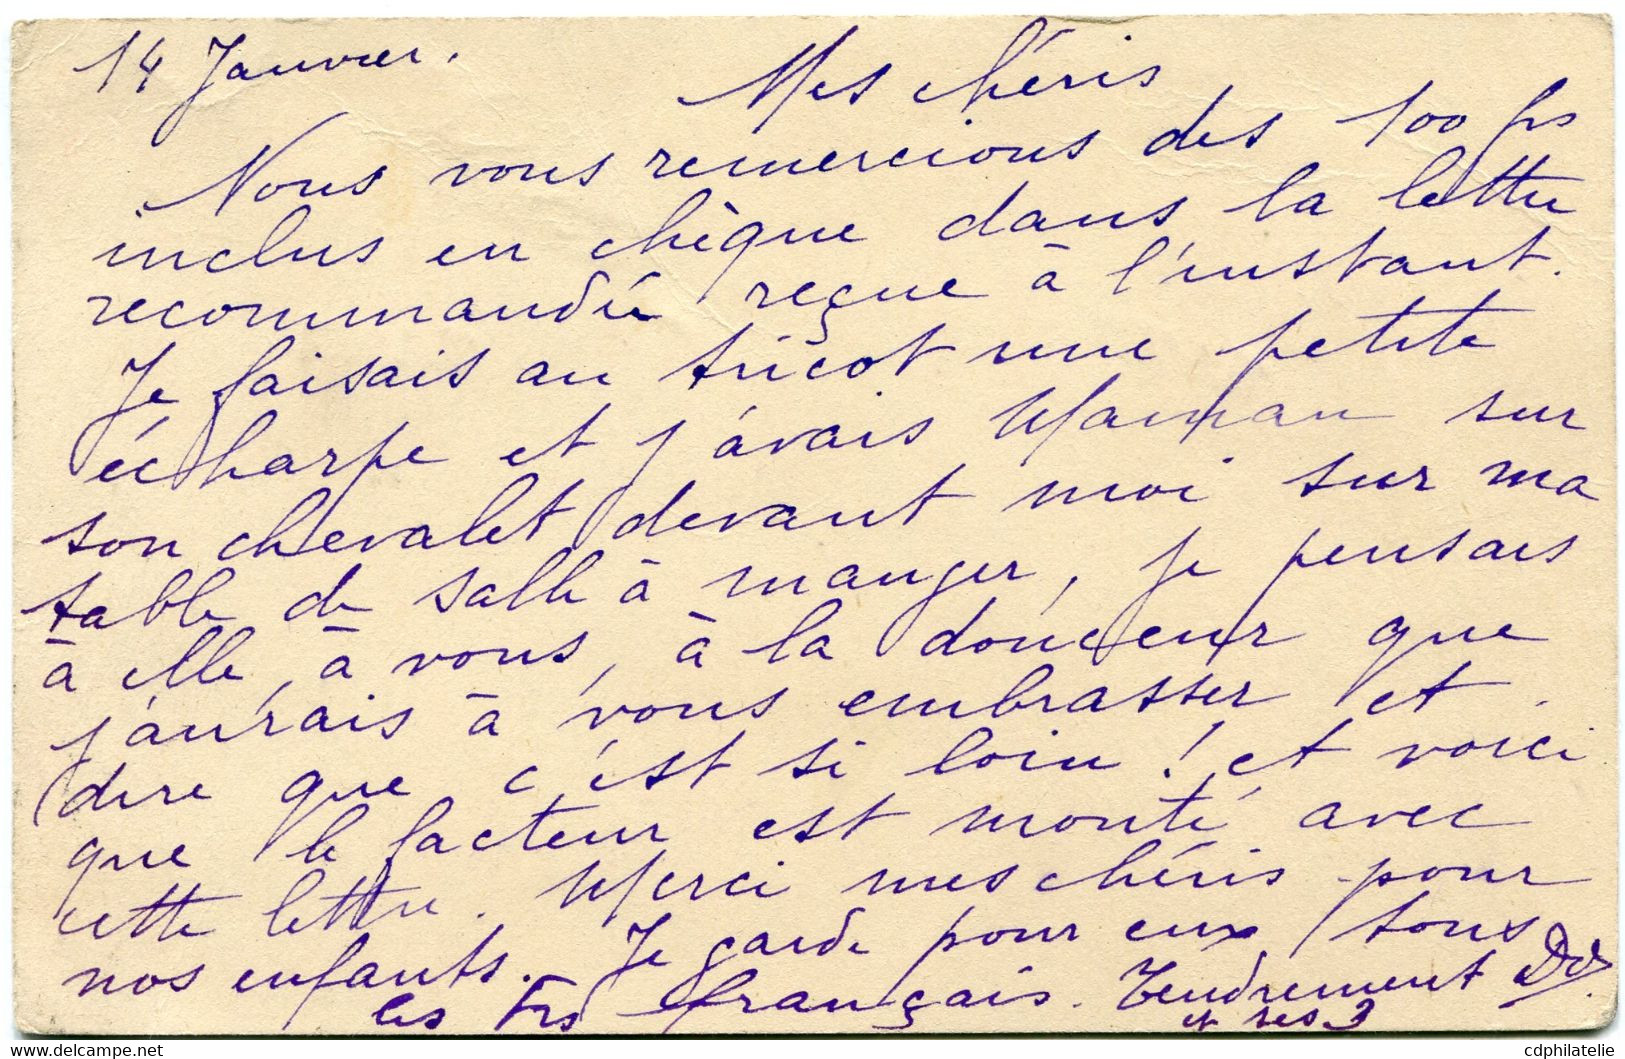 14 Janvier.
Mes chéris
Nous vous remercions des 100 frs
inclus en chèque dans la lettre
recommandée reçue à l'instant.
Je faisais au tricot une petite
écharpe et j'avais Maman sur
son chevalet devant moi sur ma
table de salle à manger, je pensais
à elle, à vous, à la douceur que
j'aurais à vous embrasser et
dire que c'est si loin ! et voici
que le facteur est monté avec
cette lettre. Merci mes chéris pour
nos enfants. Je garde pour eux tous
les frs français. Tendrement
et ses 3
cdphilatelie